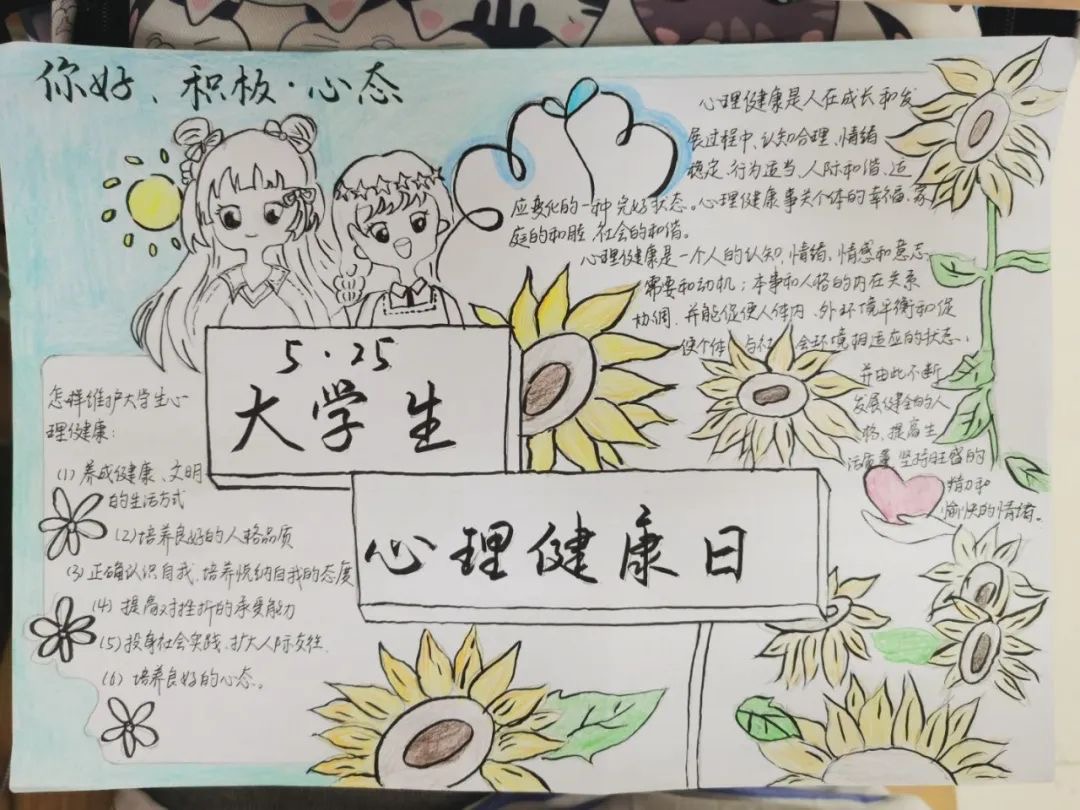 你好、积极·心态
5·25
大学生
心理健康日
心理健康是人在成长和发
展过程中,认知合理、情绪
稳定、行为适当、人际和谐、适
应变化的一种完好状态。心理健康事关个体的幸福、家
庭的和睦、社会的和谐。
心理健康是一个人的认知、情绪、情感和意志、
需要和动机;本事和人格的内在关系
协调,并能促使人体内、外环境平衡和促
使个体与社会环境相适应的状态,
并由此不断
发展健全的人
格,提高生
活质量,坚持旺盛的
精力和
愉快的情绪。
怎样维护大学生心
理健康:
(1)养成健康、文明
的生活方式
(2)培养良好的人格品质
(3)正确认识自我,培养悦纳自我的态度
(4)提高对挫折的承受能力
(5)投身社会实践,扩大人际交往.
(6)培养良好的心态。